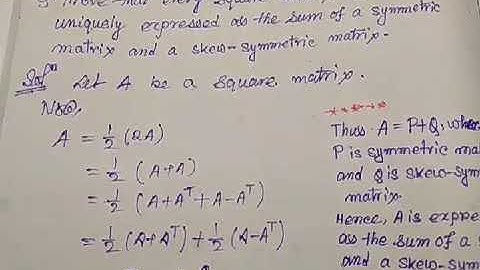 prove that every square
uniquely expressed as the sum of a symmetric
matrix and a skew-symmetric matrix.
Solⁿ Let A be a square matrix.
Now,
A = 1/2 (2A)
= 1/2 (A+A)
= 1/2 (A+Aᵀ+A-Aᵀ)
= 1/2 (A+Aᵀ) + 1/2 (A-Aᵀ)
Thus A = P+Q, wher
P is symmetric ma
and Q is skew-sym
matrix.
Hence, A is expre
as the sum of a s
and a skew-sym